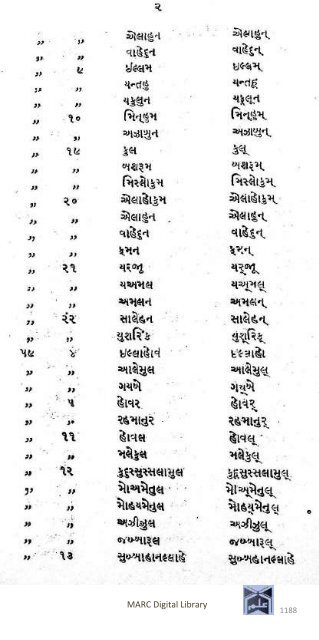 ૨
,, ,, એલાહુન એલાહુન્
,, ,, વાહેદુન વાહેદુન્
,, ૯ ઇલ્લમ ઇલ્લમ્
,, ,, યન્તહુ યન્તહૂ
,, ,, યકુલુન યકૂલૂન
,, ૧૦ મિન્હુમ મિન્હુમ્
,, ,, અઝાબુન અઝાબુન્
,, ૧૯ કુલ કુલ્
,, ,, બશરૂમ બશરૂમ્
,, ,, મિસ્લોકુમ મિસ્લોકુમ્
,, ૨૦ એલાહોકુમ એલાહોકુમ્
,, ,, એલાહુન એલાહુન્
,, ,, વાહેદુન વાહેદુન્
,, ,, ફમન ફમન્
,, ૨૧ યરજૂ યર્જૂ
,, ,, યઅમલ યઅ્મલ્
,, ,, અમલન અમલન્
,, ૨૨ સાલેહન સાલેહન્
,, ,, યુશરિક યુશ્રિક્
૫૯ ૪ ઇલ્લાહોવ ઇલ્લાહો
,, ,, આલેમુલ આલેમુલ્
,, ,, ગયબે ગય્બે
,, ૫ હોવર હોવર્
,, ,, રહમાનુર રહમાનુર્
,, ૧૧ હોવલ હોવલ્
,, ,, મલેકુલ મલેકુલ્
,, ૧૨ કુદ્દુસુસ્સલામુલ કુદ્દૂસુસ્સલામુલ્
,, ,, મોઅમેનુલ મોઅ્મેનુલ્
,, ,, મોહયમેનુલ મોહય્મેનુલ્
,, ,, અઝીઝુલ અઝીઝુલ્
,, ,, જબ્બારૂલ જબ્બારૂલ્
,, ૧૩ સુબ્હાહાનલ્લાહે સુબ્હાહાનલ્લાહે
MARC Digital Library 1188